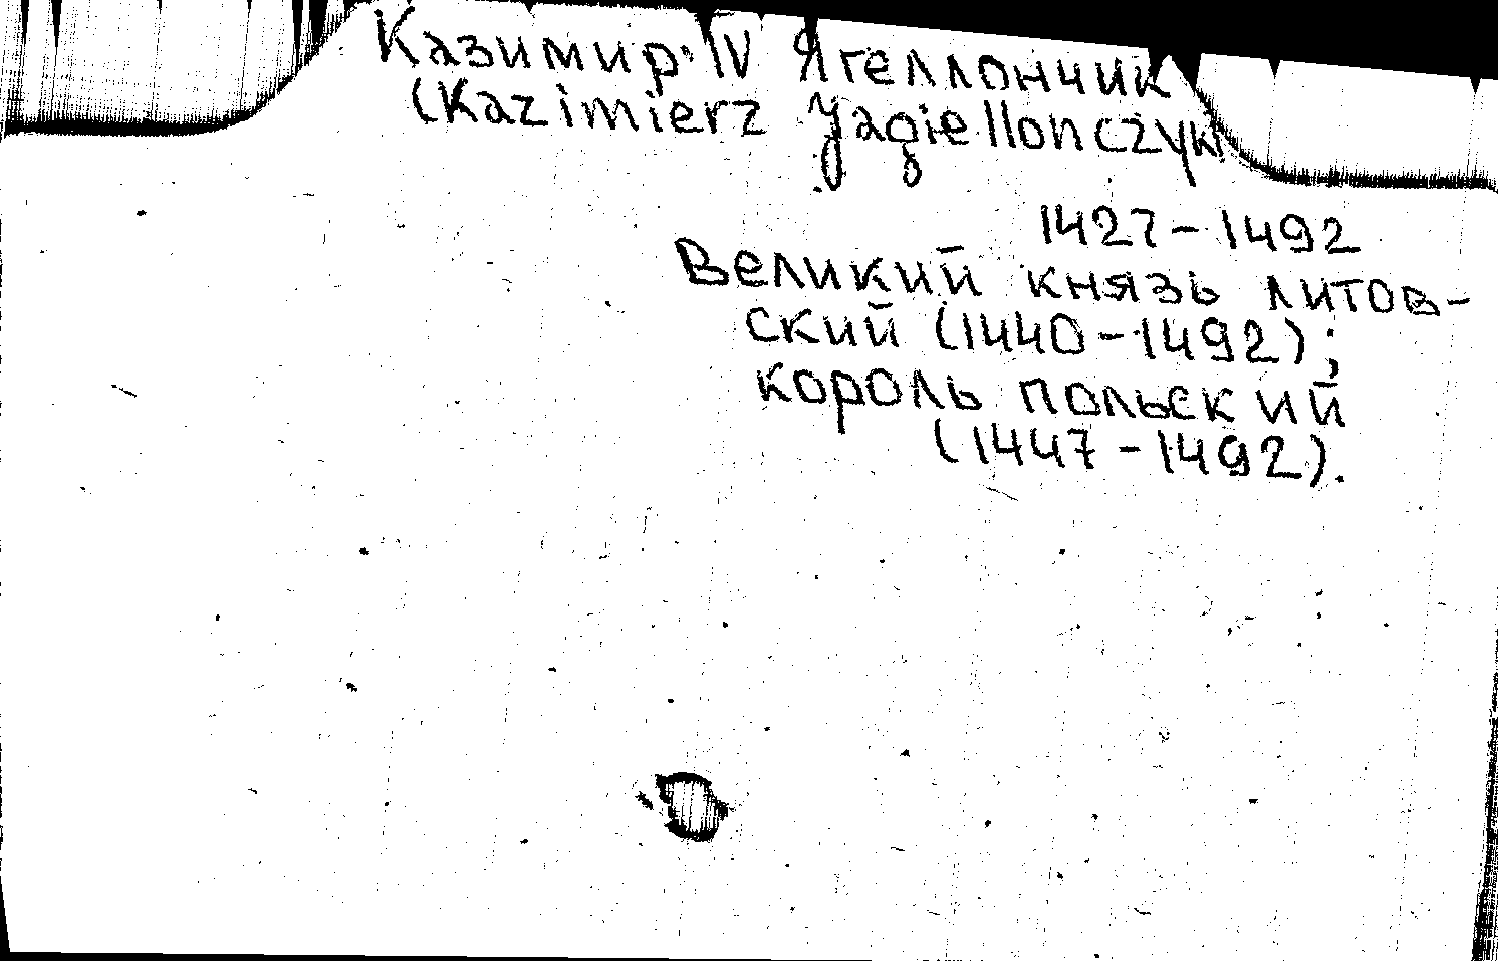 Казимир IV Ягеллончик
(Kazimierz Jagiellonczyk
1427-1492
Великий князь литов-
ский (1440-1492);
король польский
(1447-1492).